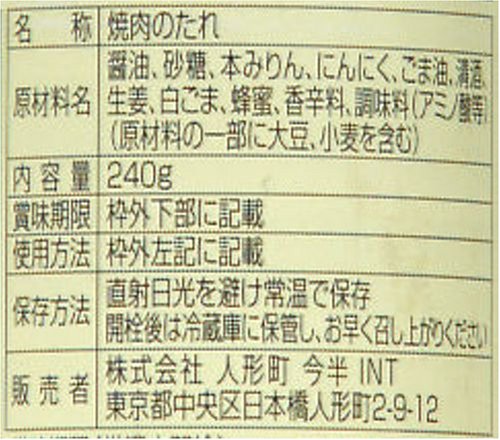 名称 焼肉のたれ
原材料名 醤油、砂糖、本みりん、にんにく、ごま油、清酒、
生姜、白ごま、蜂蜜、香辛料、調味料(アミノ酸等)
(原材料の一部に大豆、小麦を含む)
内容量 240g
賞味期限 枠外下部に記載
使用方法 枠外左記に記載
保存方法 直射日光を避け常温で保存
開栓後は冷蔵庫に保管し、お早く召し上がりください
販売者 株式会社 人形町 今半 INT
東京都中央区日本橋人形町2-9-12